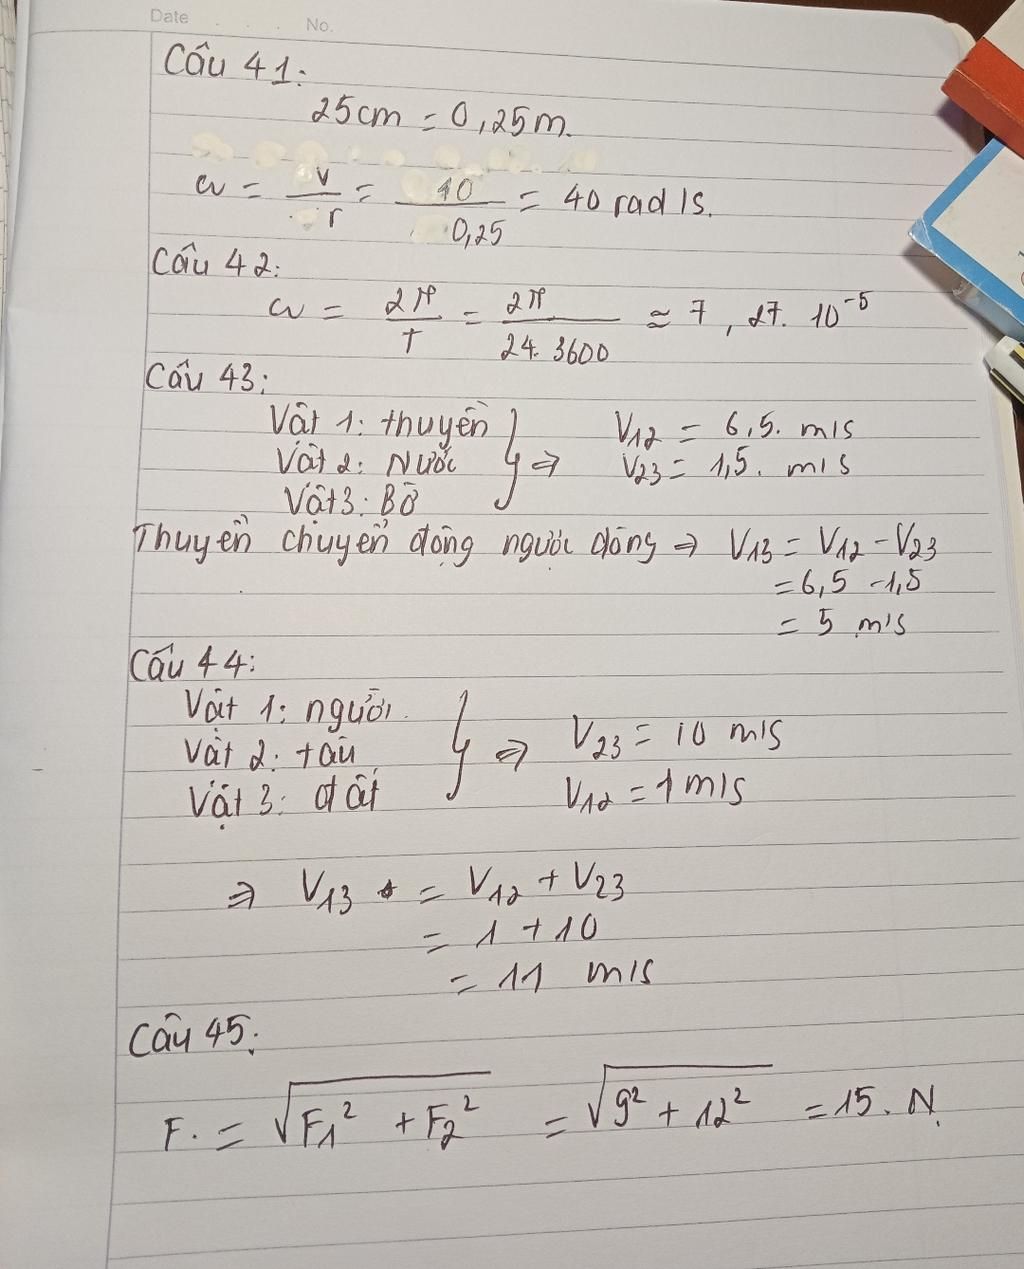 Date . . . No.
Câu 41:
25cm = 0,25m.
ω = v/r = 10/0,25 = 40 rad/s.
Câu 42:
ω = 2π/T = 2π/24.3600 ≈ 7,27.10⁻⁵
Câu 43:
Vật 1: thuyền
Vật 2: Nước
Vật 3: Bờ
} ⇒ V₁₂ = 6,5. m/s
V₂₃ = 1,5. m/s
Thuyền chuyển động ngược dòng ⇒ V₁₃ = V₁₂ - V₂₃
= 6,5 - 1,5
= 5 m/s
Câu 44:
Vật 1: người.
Vật 2: tàu
Vật 3: đất
} ⇒ V₂₃ = 10 m/s
V₁₂ = 1 m/s
⇒ V₁₃ = V₁₂ + V₂₃
= 1 + 10
= 11 m/s
Câu 45:
F. = √(F₁² + F₂²) = √(9² + 12²) = 15. N